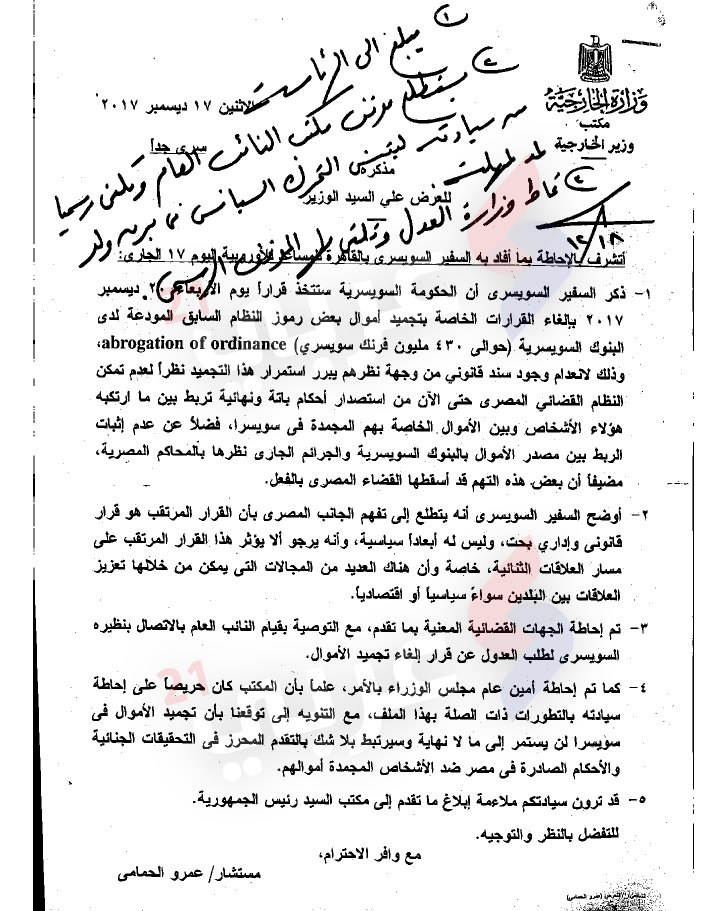 وزارة الخارجية
مكتب
وزير الخارجية
الاثنين ١٧ ديسمبر ٢٠١٧
سرى جداً
١ يبلغ الى الرئاسة
مكتب النائب العام
وزارة العدل
١٢/١٨
مذكرة
للعرض علي السيد الوزير
أتشرف بالإحاطة بما أفاد به السفير السويسرى بالقاهرة للأوروبية اليوم ١٧ الجارى:
١- ذكر السفير السويسرى أن الحكومة السويسرية ستتخذ قراراً يوم الأربعاء ٢٠ ديسمبر
٢٠١٧ بإلغاء القرارات الخاصة بتجميد أموال بعض رموز النظام السابق المودعة لدى
البنوك السويسرية (حوالى ٤٣٠ مليون فرنك سويسري) abrogation of ordinance،
وذلك لانعدام وجود سند قانوني من وجهة نظرهم يبرر استمرار هذا التجميد نظراً لعدم تمكن
النظام القضائي المصرى حتى الآن من استصدار أحكام باتة ونهائية تربط بين ما ارتكبه
هؤلاء الأشخاص وبين الأموال الخاصة بهم المجمدة فى سويسرا، فضلاً عن عدم إثبات
الربط بين مصدر الأموال بالبنوك السويسرية والجرائم الجارى نظرها بالمحاكم المصرية،
مضيفاً أن بعض هذه التهم قد أسقطها القضاء المصرى بالفعل.
٢- أوضح السفير السويسرى أنه يتطلع إلى تفهم الجانب المصرى بأن القرار المرتقب هو قرار
قانونى وإداري بحت، وليس له أبعاداً سياسية، وأنه يرجو ألا يؤثر هذا القرار المرتقب على
مسار العلاقات الثنائية، خاصة وأن هناك العديد من المجالات التى يمكن من خلالها تعزيز
العلاقات بين البلدين سواءً سياسياً أو اقتصادياً.
٣- تم إحاطة الجهات القضائية المعنية بما تقدم، مع التوصية بقيام النائب العام بالاتصال بنظيره
السويسرى لطلب العدول عن قرار إلغاء تجميد الأموال.
٤- كما تم إحاطة أمين عام مجلس الوزراء بالأمر، علماً بأن المكتب كان حريصاً على إحاطة
سيادته بالتطورات ذات الصلة بهذا الملف، مع التنويه إلى توقعنا بأن تجميد الأموال فى
سويسرا لن يستمر إلى ما لا نهاية وسيرتبط بلا شك بالتقدم المحرز فى التحقيقات الجنائية
والأحكام الصادرة فى مصر ضد الأشخاص المجمدة أموالهم.
٥- قد ترون سيادتكم ملاءمة إبلاغ ما تقدم إلى مكتب السيد رئيس الجمهورية.
للتفضل بالنظر والتوجيه.
مع وافر الاحترام،
مستشار/ عمرو الحمامى
عربي 21